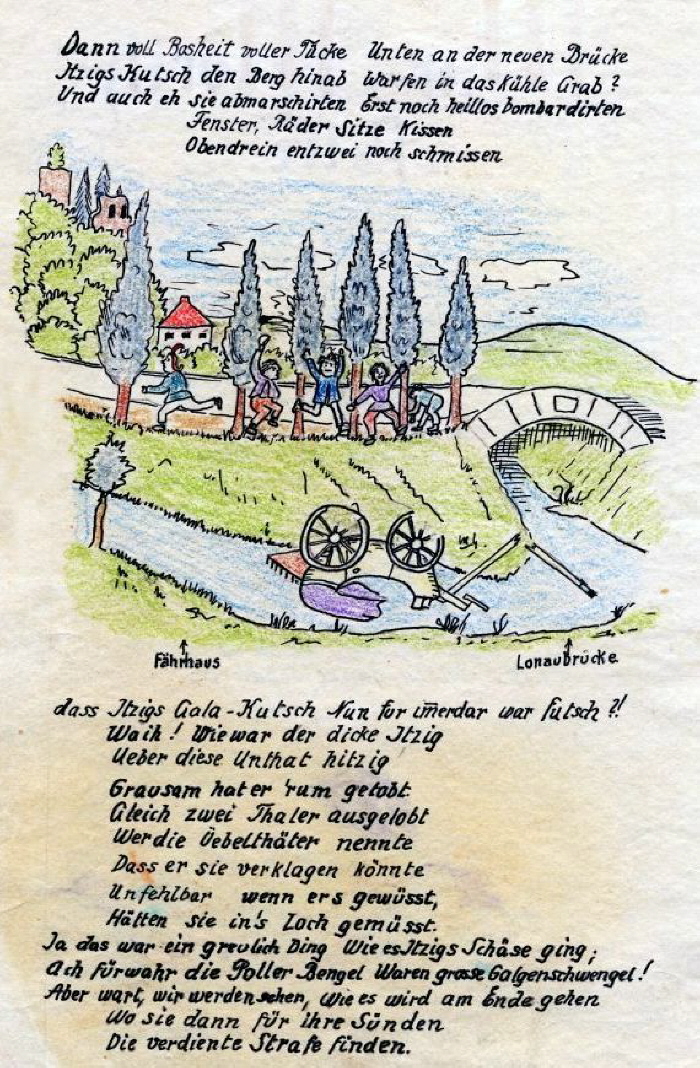 Dann voll Bosheit voller Tücke Unten an der neuen Brücke
Itzigs Kutsch den Berg hinab Warfen in das kühle Grab?
Und auch eh sie abmarschirten Erst noch heillos bombardirten
Fenster, Räder Sitze Kissen
Obendrein entzwei noch schmissen
Fährhaus
Lonaubrücke
dass Itzigs Gala-Kutsch Nun for im̅erdar war futsch?!
Waih! Wie war der dicke Itzig
Ueber diese Unthat hitzig
Grausam hat er 'rum getobt
Gleich zwei Thaler ausgelobt
Wer die Uebelthäter nennte
Dass er sie verklagen könnte
Unfehlbar wenn ers gewüsst,
Hätten sie in's Loch gemüsst.
Ja das war ein greulich Ding Wie es Itzigs Schäse ging;
Ach fürwahr die Poller Bengel Waren grosse Galgenschwengel!
Aber wart, wir werden sehen, Wie es wird am Ende gehen
Wo sie dann für ihre Sünden
Die verdiente Strafe finden.